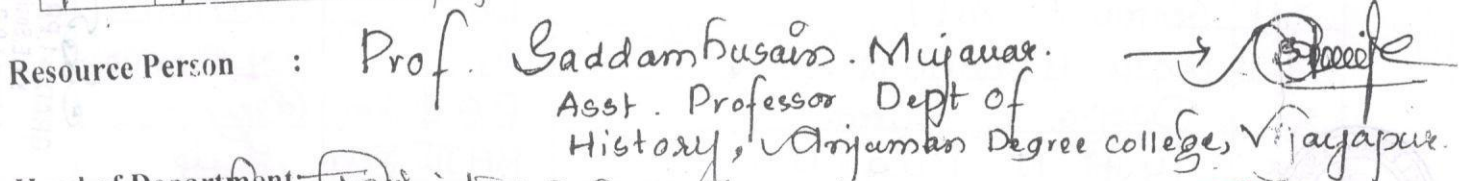 Resource Person : Prof. Saddamhusain. Mujawar. →
Asst. Professor Dept of
History, Anjuman Degree college, Vijayapur.
Head of Department: